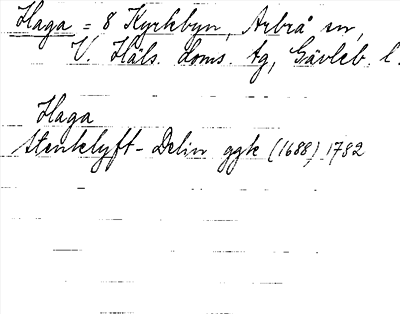 Haga = 8 Kyrkbyn, Arbrå sn,
V. Häls. doms. tg, Gävleb. l.
Haga
Stenklyft-Delin ggk (1688) 1782